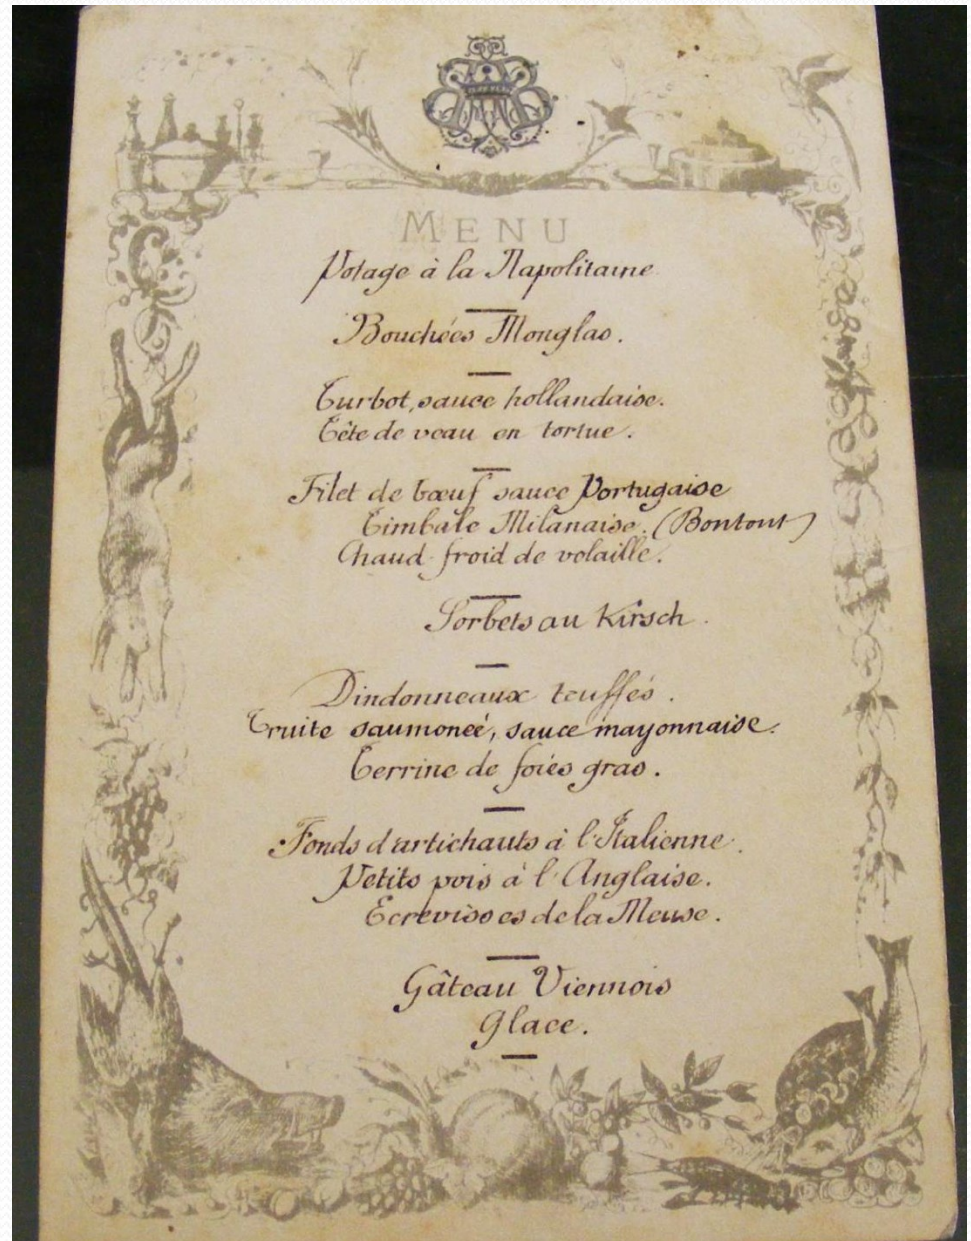 MENU
Potage à la Napolitaine
Bouchées Monglas.
Turbot, sauce hollandaise.
Tête de veau en tortue.
Filet de bœuf sauce Portugaise
Timbale Milanaise. (Bontout)
Chaud-froid de volaille.
Sorbets au Kirsch.
Dindonneaux truffés.
Truite saumoneé, sauce mayonnaise.
Terrine de foies gras.
Fonds d'artichauts à l'Italienne.
Petits pois à l'Anglaise.
Ecrevisses de la Meuse.
Gâteau Viennois
Glace.